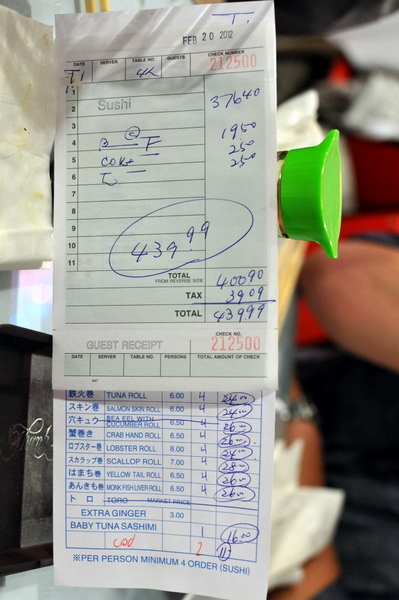 T.
FEB 20 2012
DATE SERVER TABLE NO. GUESTS CHECK NUMBER
T1 4K 212500
1
2 Sushi 376 40
3
4 B ② F 19 50
5 COKE 2 50
6 T 2 50
7
8
9
10 439.99
11
TOTAL 400 90
FROM REVERSE SIDE
TAX 39 09
TOTAL 439 99
GUEST RECEIPT CHECK NO. 212500
DATE SERVER TABLE NO. PERSONS TOTAL AMOUNT OF CHECK
鉄火巻 TUNA ROLL 6.00 4 24.00
スキン巻 SALMON SKIN ROLL 6.00 4 24.00
穴キュウ SEA EEL WITH CUCUMBER ROLL 6.50 4 26.00
蟹巻き CRAB HAND ROLL 6.50 4 26.00
ロブスター巻 LOBSTER ROLL 8.00 4 24.00
スカラップ巻 SCALLOP ROLL 7.00 4 28.00
はまち巻 YELLOW TAIL ROLL 6.50 4 26.00
あんきも巻 MONK FISH LIVER ROLL 6.50 4 26.00
トロ TORO MARKET PRICE
EXTRA GINGER 3.00
BABY TUNA SASHIMI 1 16.00
cod 2 11
※PER PERSON MINIMUM 4 ORDER (SUSHI)